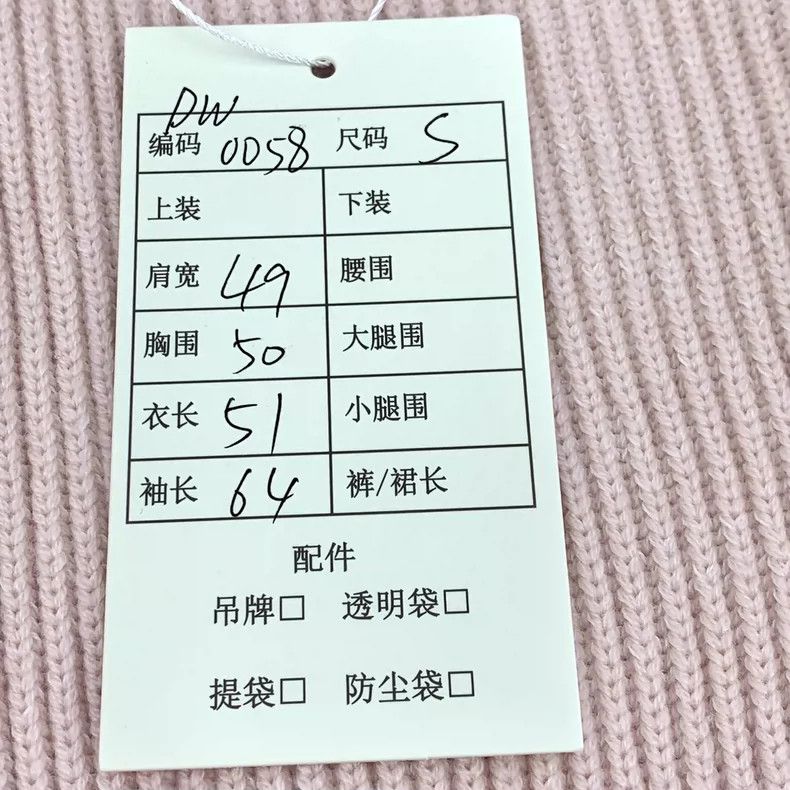 DW
编码 0058 尺码 S
上装 下装
肩宽 49 腰围
胸围 50 大腿围
衣长 51 小腿围
袖长 64 裤/裙长
配件
吊牌□ 透明袋□
提袋□ 防尘袋□